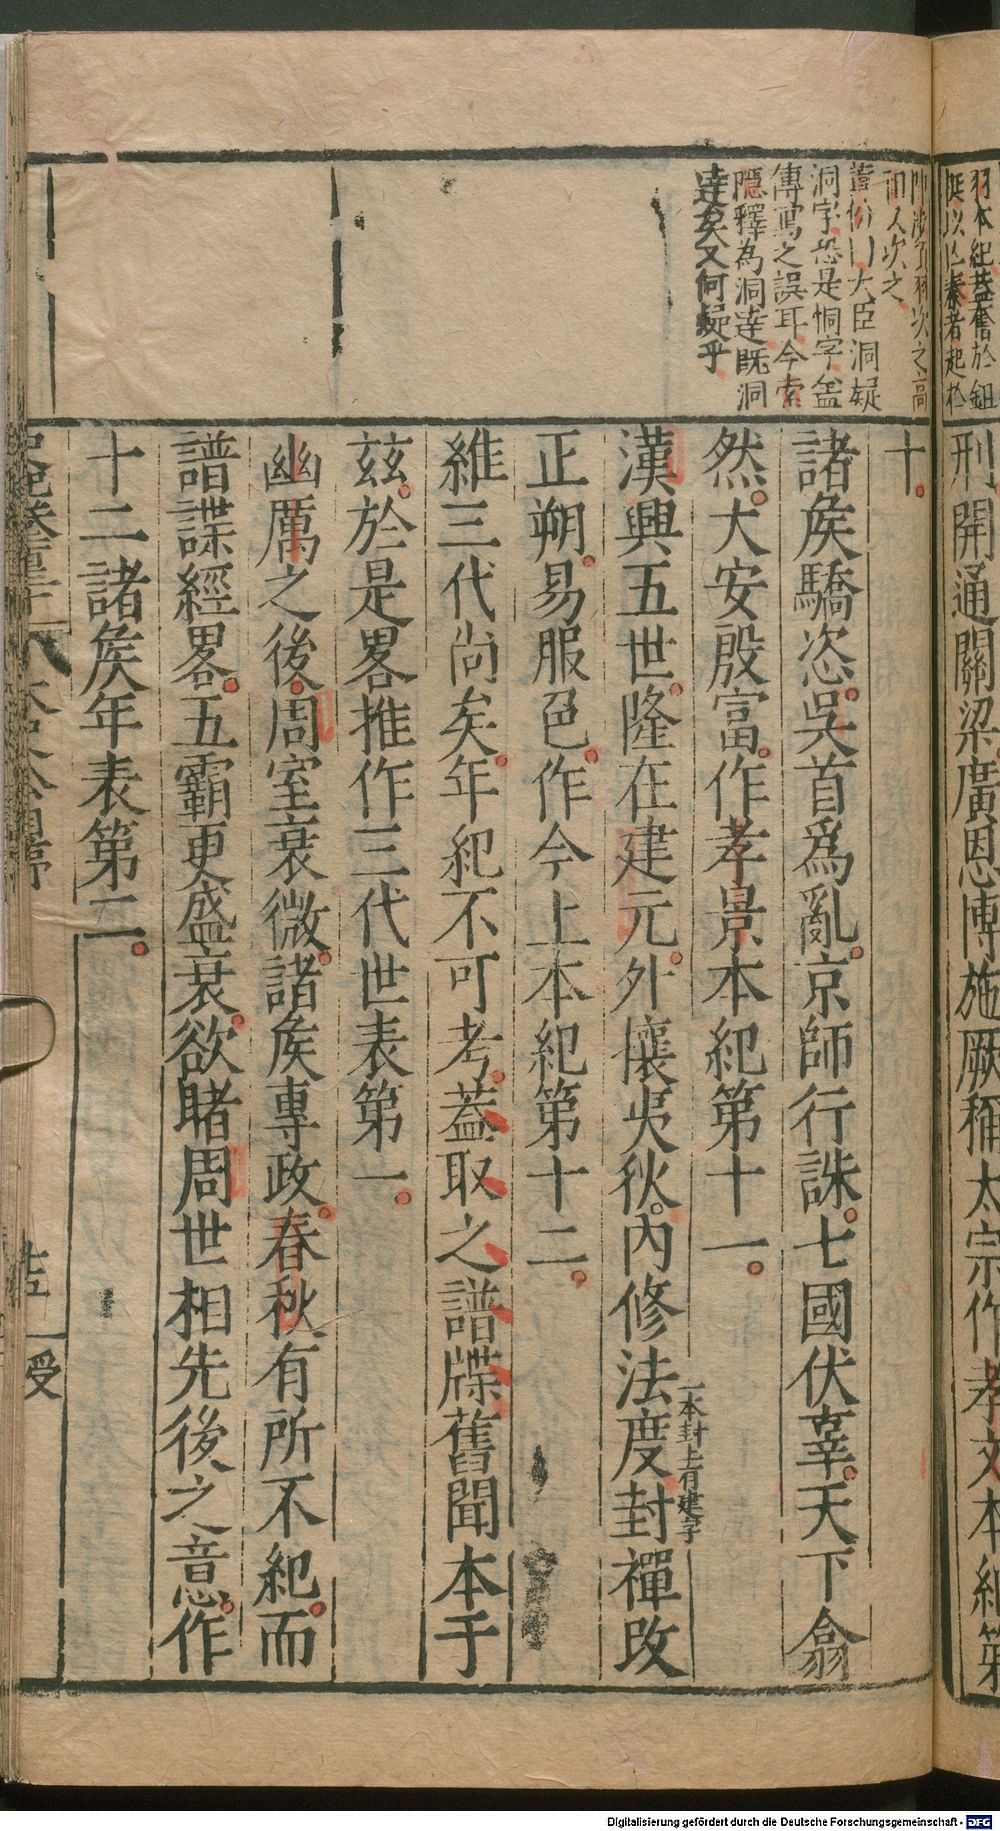 刑開通關梁廣恩博施厥稱太宗作孝文本紀第
十
諸侯驕恣吳首爲亂京師行誅七國伏辜天下翕
然大安殷富作孝景本紀第十一
漢興五世隆在建元外攘夷狄內修法度封禪改
一本封上有建字
正朔易服色作今上本紀第十二
維三代尚矣年紀不可考蓋取之譜牒舊聞本于
茲於是畧推作三代世表第一
幽厲之後周室衰微諸侯專政春秋有所不紀而
譜諜經畧五霸更盛衰欲睹周世相先後之意作
十二諸侯年表第二
次之高
次之
大臣洞疑
洞字恐是恫字盖
傳寫之誤耳今索
隱釋為洞達既洞
達矣又何疑乎
授
Digitalisierung gefördert durch die Deutsche Forschungsgemeinschaft - DFG